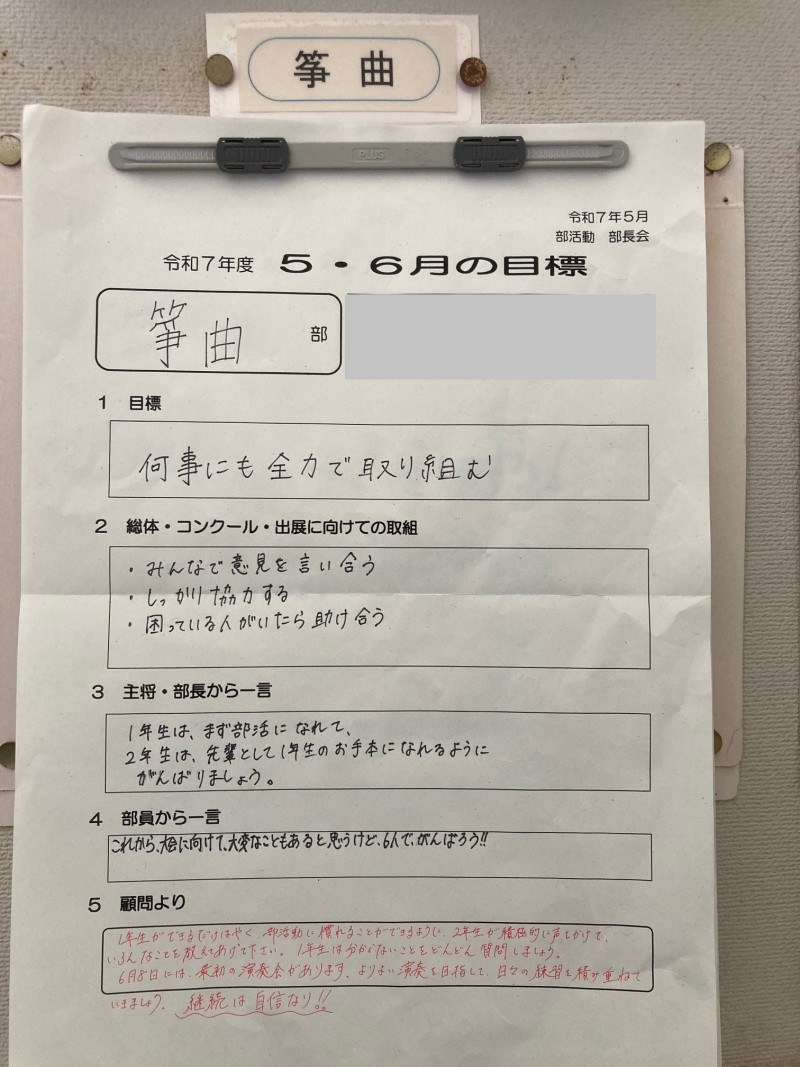 箏曲
PLUS
令和7年5月
部活動 部長会
令和7年度 5・6月の目標
箏曲 部
1 目標
何事にも全力で取り組む
2 総体・コンクール・出展に向けての取組
・みんなで意見を言い合う
・しっかり協力する
・困っている人がいたら助け合う
3 主将・部長から一言
1年生は、まず部活になれて、
2年生は、先輩として1年生のお手本になれるように
がんばりましょう。
4 部員から一言
これから、大会に向けて、大変なこともあると思うけど、6人で、がんばろう!!
5 顧問より
1年生ができるだけはやく部活動に慣れることができるように、2年生が積極的に声をかけて、
いろんなことを教えてあげて下さい。1年生は分からないことをどんどん質問しましょう。
6月8日には、最初の演奏会があります。よりよい演奏を目指して、日々の練習を積み重ねて
いきましょう。継続は自信なり!!